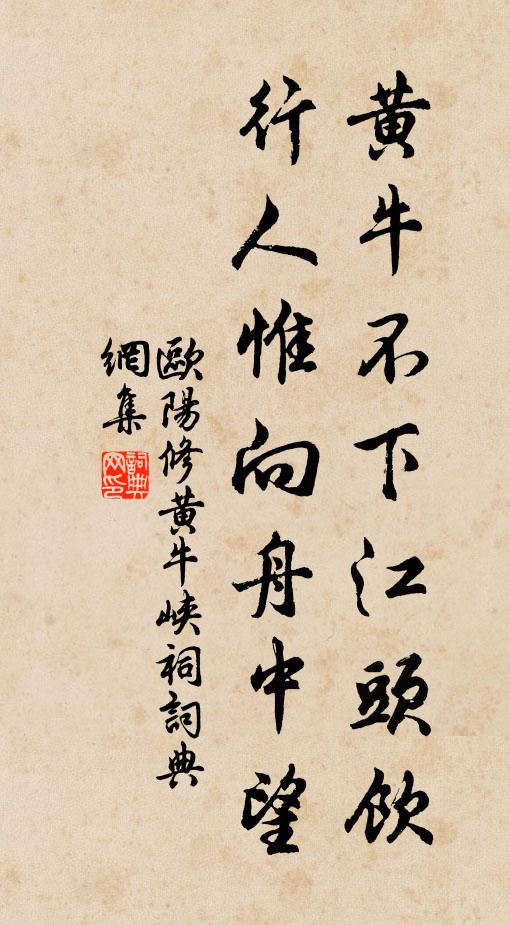 黄牛不下江頭飲
行人惟向舟中望
歐陽修黄牛峽祠詞典
網集
詞典
网印